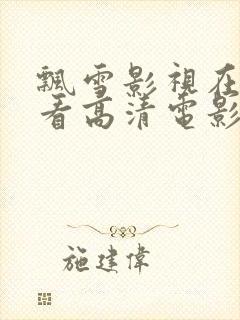 飄雪影視在
看高清電影
施建偉